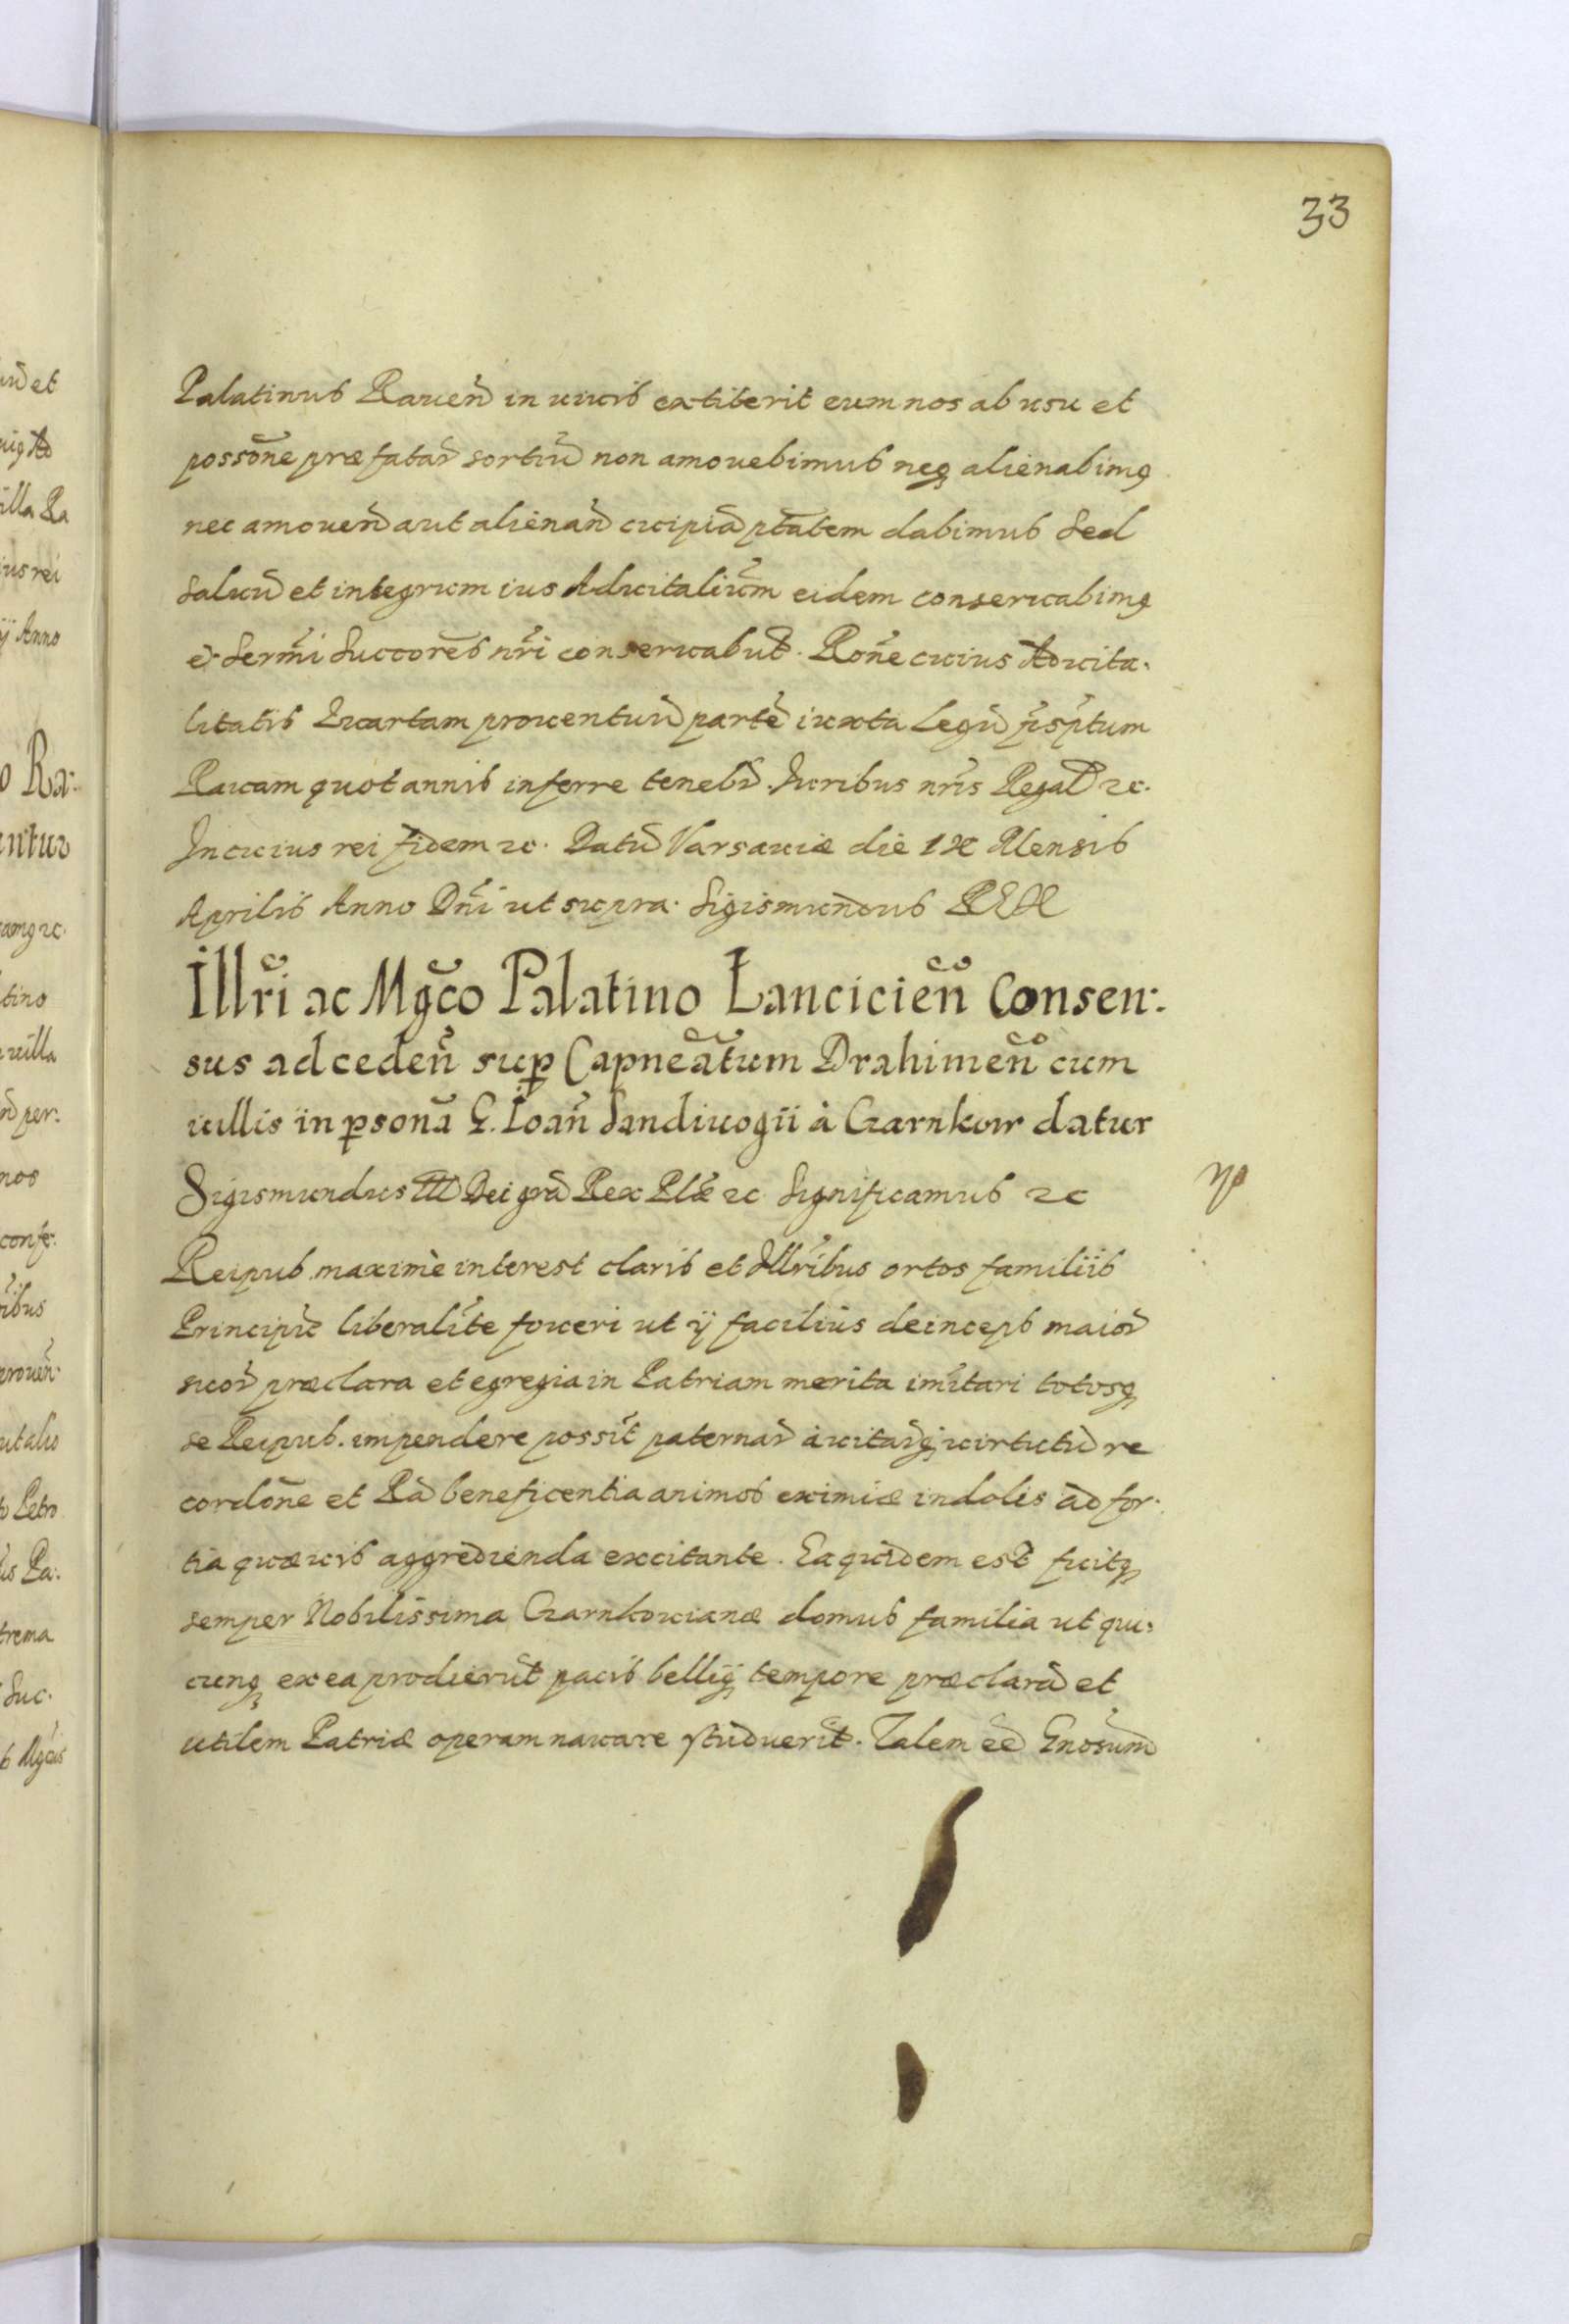 33
Palatinus Rauen̄ in viuis extiterit eum nos ab usu et
possōne præfatar̄ sortiū non amouebimus neq, alienabimq
nec amouen̄ aut alienan̄ cuipiā ptātem dabimus Sed
Saluū et integrum ius Aduitaliūm eidem conseruabimq
et Sermī Succorēs nr̄i conseruabūt. Rōne cuius Aduita-
litatis Quartam prouentuū partē iuxta Legū p̄sp̄tum
Rauam quotannis inferre teneb̄r. Iuribus nr̄is Regal̄ ꝛc.
In cuius rei fidem ꝛc. Datū Varsauiæ die IX Mensis
Aprilis Anno Dn̄i ut supra. Sigismundus REX
Illr̄i ac Mgc̄o Palatino Lancicien̄ Consen:
sus ad ceden̄ sup̱ Capneātum Drahimen̄ cum
uillis in p̱sonā G. Ioan̄ Sandiuogii à Czarnkow datur
Sigismundus III Dei grā Rex Pl̄æ ꝛc Significamus ꝛc
Reipub. maximè interest claris et Illr̄ibus ortos familiis
Principū liberalīte foueri ut ij facilius deinceps maior̄
suor̄ præclara et egregia in Patriam merita imitari totosq,
se Reipub. impendere possīt paternar̄ auitar̄q, uirtutū re
cordōne et Rā beneficentia animos eximiæ indolis ad for:
tia quæuis aggredienda excitante. Ea quidem est fuitq,
semper Nobilissima Czarnkouianæ domus familia ut qui:
cunq, ex ea prodierūt pacis belliq, tempore præclarā et
utilem Patriæ operam nauare studuerīt. Talem eē Gnosūm